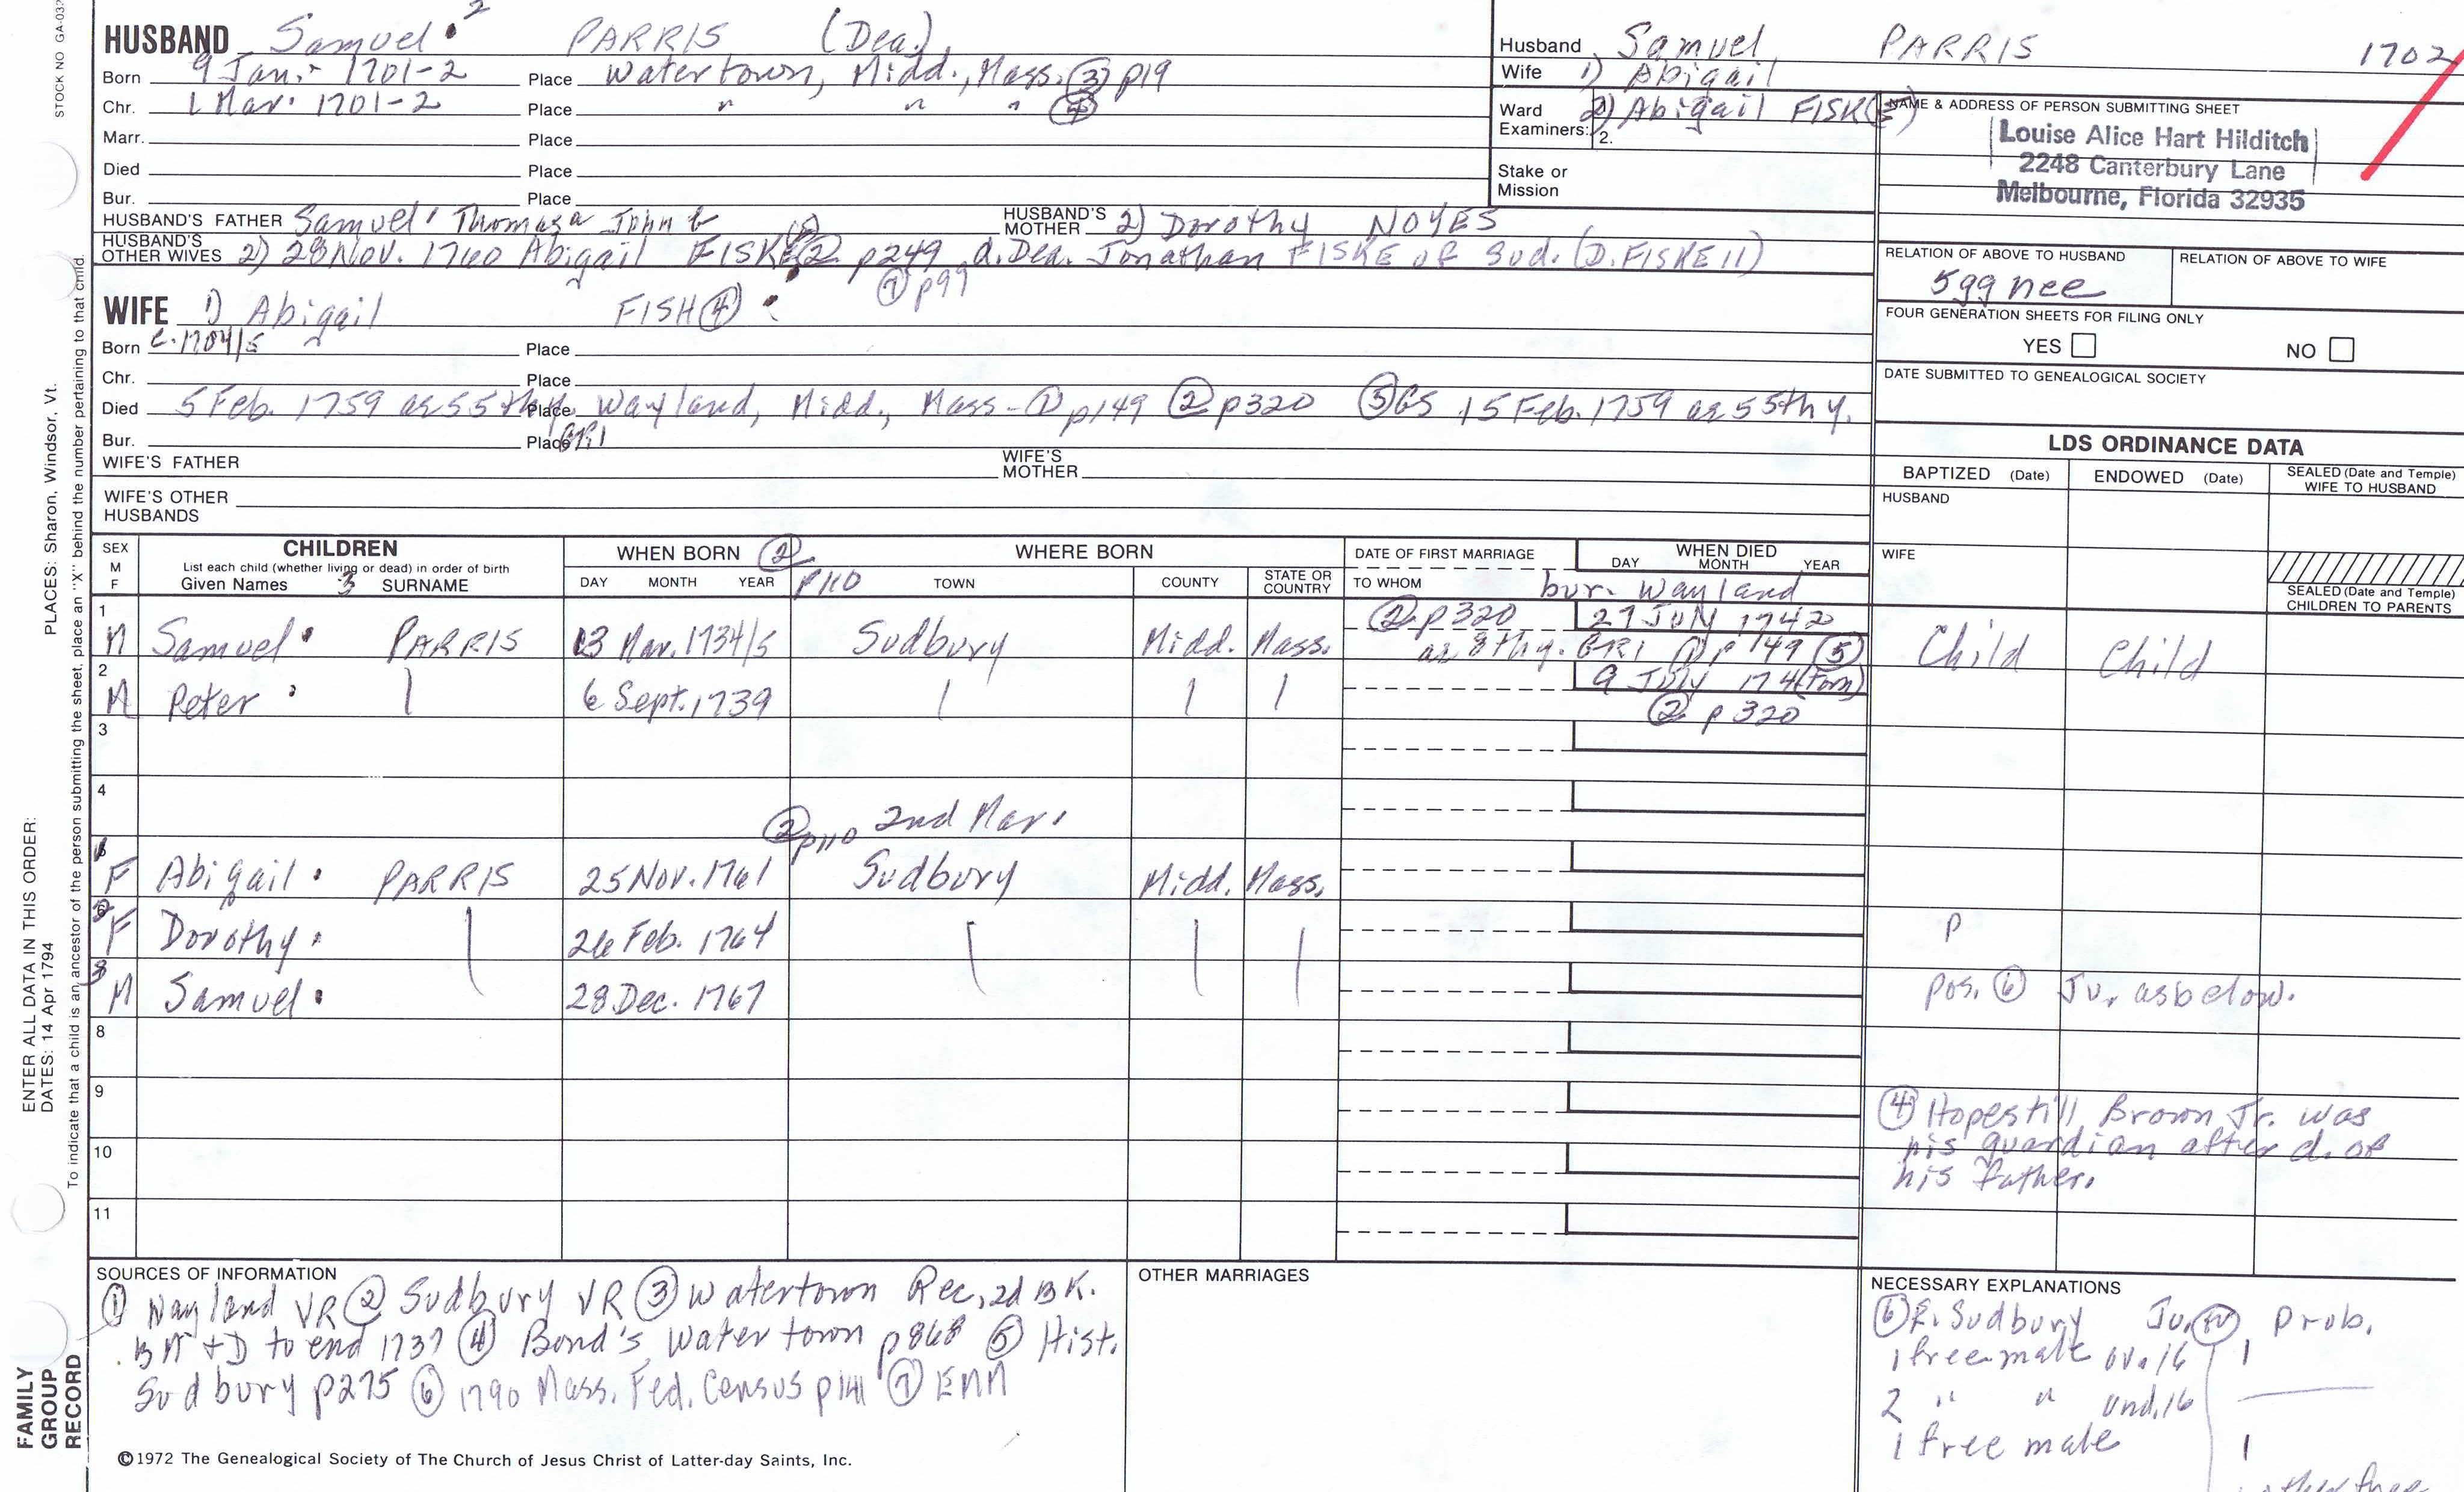 STOCK NO GA-032
HUSBAND Samuel 2 PARRIS (Dea.)
Born 9 Jan. 1701-2 Place Watertown, Midd., Mass. ③ p19
Chr. 1 Mar. 1701-2 Place " " " ④
Marr. Place
Died Place
Bur. Place
HUSBAND'S FATHER Samuel 1 Thomas a John b HUSBAND'S MOTHER 2) Dorothy NOYES
HUSBAND'S OTHER WIVES 2) 28 Nov. 1760 Abigail FISKE ② p249 d. Dea. Jonathan FISKE of Sud. (D. FISKE 11)
⑦ p99
WIFE 1) Abigail FISH ④
Born c. 1704/5 Place
Chr. Place
Died 5 Feb. 1759 ae 55th y. Place Wayland, Midd., Mass - ① p149 ② p320 ⑤ GS 15 Feb. 1759 ae 55th y.
Bur. Place GR1
WIFE'S FATHER WIFE'S MOTHER
WIFE'S OTHER HUSBANDS
Husband Samuel PARRIS 1702
Wife 1) Abigail
Ward Examiners: 1. 2. 2) Abigail FISK(E)
Stake or Mission
NAME & ADDRESS OF PERSON SUBMITTING SHEET
Louise Alice Hart Hilditch
2248 Canterbury Lane
Melbourne, Florida 32935
RELATION OF ABOVE TO HUSBAND RELATION OF ABOVE TO WIFE
5gg nee
FOUR GENERATION SHEETS FOR FILING ONLY
YES NO
DATE SUBMITTED TO GENEALOGICAL SOCIETY
LDS ORDINANCE DATA
BAPTIZED (Date) ENDOWED (Date) SEALED (Date and Temple) WIFE TO HUSBAND
HUSBAND
WIFE
SEALED (Date and Temple) CHILDREN TO PARENTS
SEX M F CHILDREN WHEN BORN ② WHERE BORN DATE OF FIRST MARRIAGE WHEN DIED
List each child (whether living or dead) in order of birth DAY MONTH YEAR p110 TOWN COUNTY STATE OR COUNTRY TO WHOM DAY MONTH YEAR
Given Names 3 SURNAME bur. Wayland
1 M Samuel PARRIS 13 Mar. 1734/5 Sudbury Midd. Mass. ② p320 27 July 1742 Child Child
ae 8th y. GR1 ① p149 ⑤
2 M Peter 6 Sept. 1739 9 July 174(torn)
② p320
3
4
② p110 2nd Mar.
1 F Abigail PARRIS 25 Nov. 1761 Sudbury Midd. Mass.
2 F Dorothy 26 Feb. 1764 P
3 M Samuel 28 Dec. 1767 pos. ⑥ Ju. as below.
8
9
④ Hopestill Brown Jr. was
his guardian after d. of
his father.
10
11
SOURCES OF INFORMATION
① Wayland VR ② Sudbury VR ③ Watertown Rec, 2d BK.
BM + D to end 1737 ④ Bond's Watertown p868 ⑤ Hist.
Sudbury p275 ⑥ 1790 Mass. Fed. Census p141 ⑦ EMM
OTHER MARRIAGES
NECESSARY EXPLANATIONS
⑥ E. Sudbury Ju. Prob.
1 free male ov. 16 1
2 " " und. 16
1 free male 1
©1972 The Genealogical Society of The Church of Jesus Christ of Latter-day Saints, Inc.
FAMILY GROUP RECORD
ENTER ALL DATA IN THIS ORDER:
DATES: 14 Apr 1794
PLACES: Sharon, Windsor, Vt.
To indicate that a child is an ancestor of the person submitting the sheet, place an "X" behind the number pertaining to that child.